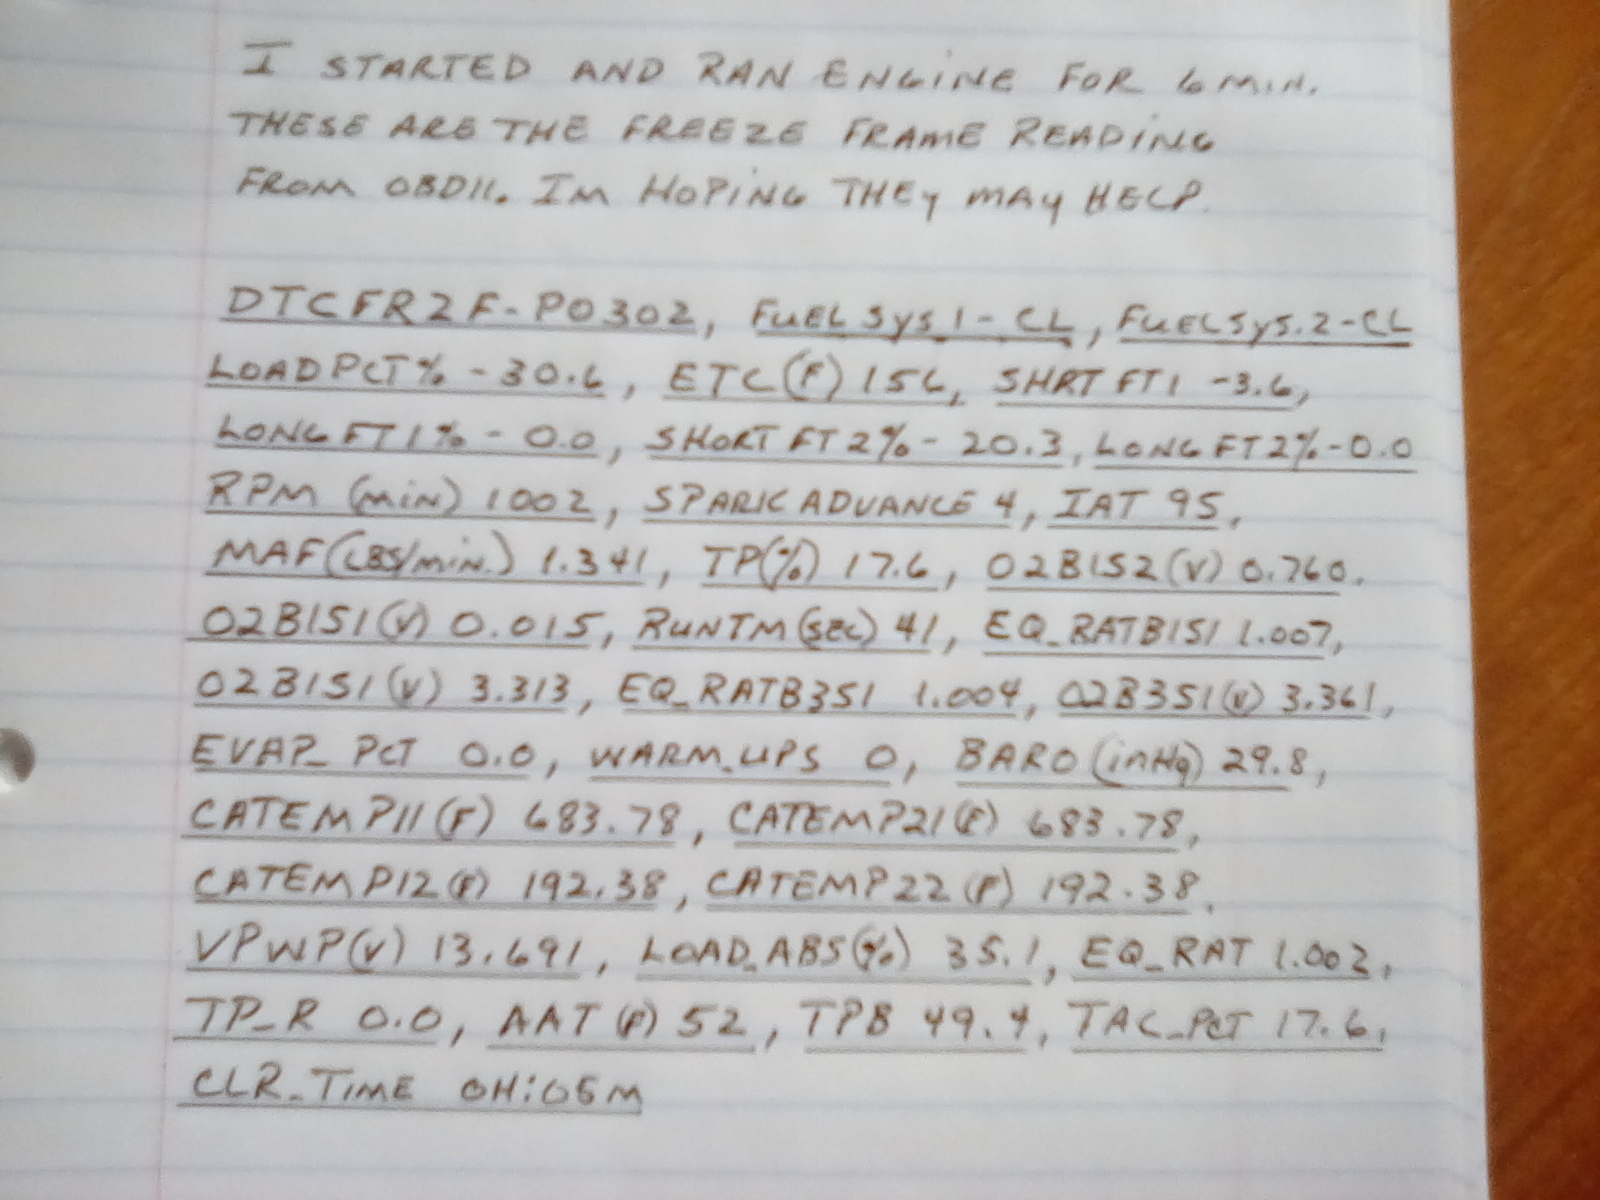 I STARTED AND RAN ENGINE FOR 6 MIN.
THESE ARE THE FREEZE FRAME READING
FROM OBDII. IM HOPING THEY MAY HELP.
DTCFRZF-P0302, FUEL SYS 1-CL, FUELSYS.2-CL
LOADPCT% -30.6, ETC(F) 156, SHRT FT1 -3.6,
LONG FT1% - 0.0, SHORT FT2% - 20.3, LONG FT2%-0.0
RPM (MIN) 1002, SPARK ADVANCE 4, IAT 95,
MAF(LBS/MIN.) 1.341, TP(%) 17.6, O2B1S2(V) 0.760,
O2B1S1(V) 0.015, RUNTM(SEC) 41, EQ_RATB1S1 1.007,
O2B1S1(V) 3.313, EQ_RATB3S1 1.004, O2B3S1(V) 3.361,
EVAP_PCT 0.0, WARM_UPS 0, BARO(inHg) 29.8,
CATEMP11(F) 683.78, CATEMP21(F) 683.78,
CATEMP12(F) 192.38, CATEMP22(F) 192.38,
VPWP(V) 13.691, LOAD_ABS(%) 35.1, EQ_RAT 1.002,
TP_R 0.0, AAT(F) 52, TPB 49.4, TAC_PCT 17.6,
CLR_TIME 0H:05M